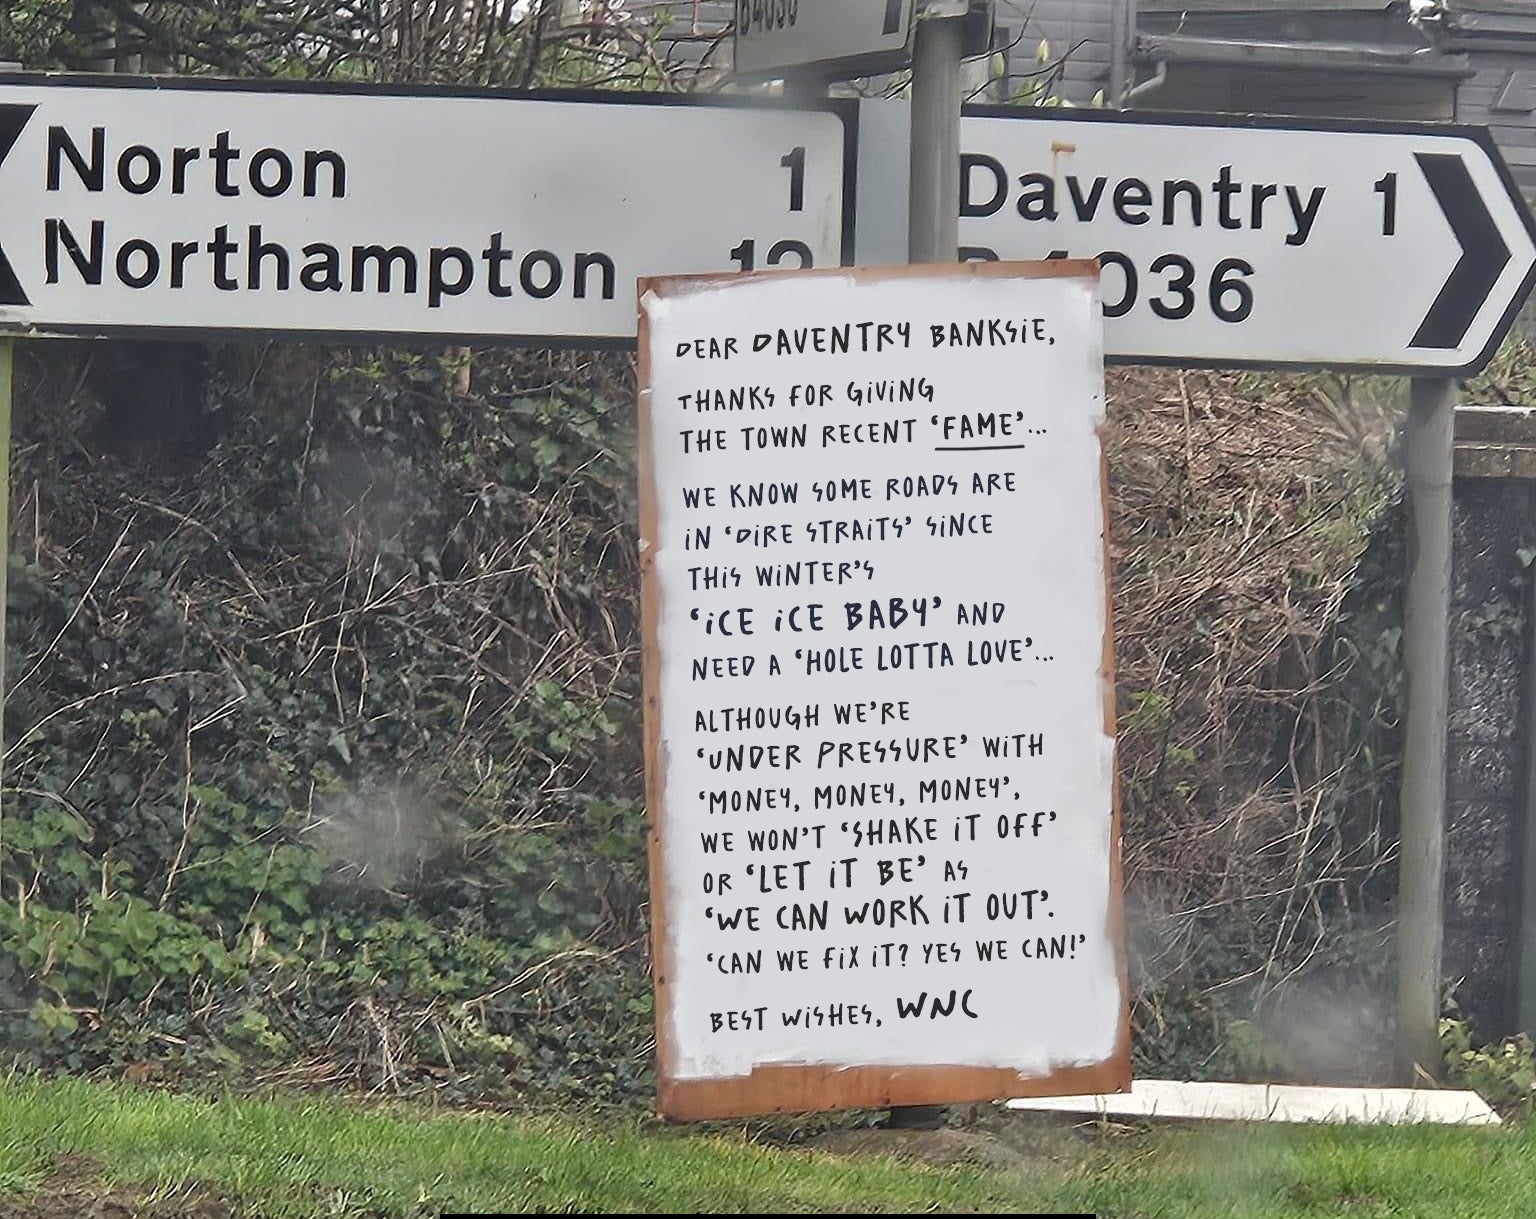 B4036
Norton 1
Northampton 12
Daventry 1
B4036
DEAR DAVENTRY BANKSiE,
THANKS FOR GiViNG
THE TOWN RECENT ‘FAME’...
WE KNOW SOME ROADS ARE
iN ‘DiRE STRAiTS’ SiNCE
THiS WiNTER’S
‘iCE iCE BABY’ AND
NEED A ‘HOLE LOTTA LOVE’...
ALTHOUGH WE’RE
‘UNDER PRESSURE’ WiTH
‘MONEY, MONEY, MONEY’,
WE WON’T ‘SHAKE iT OFF’
OR ‘LET iT BE’ AS
‘WE CAN WORK iT OUT’.
‘CAN WE FiX iT? YES WE CAN!’
BEST WiSHES, WNC